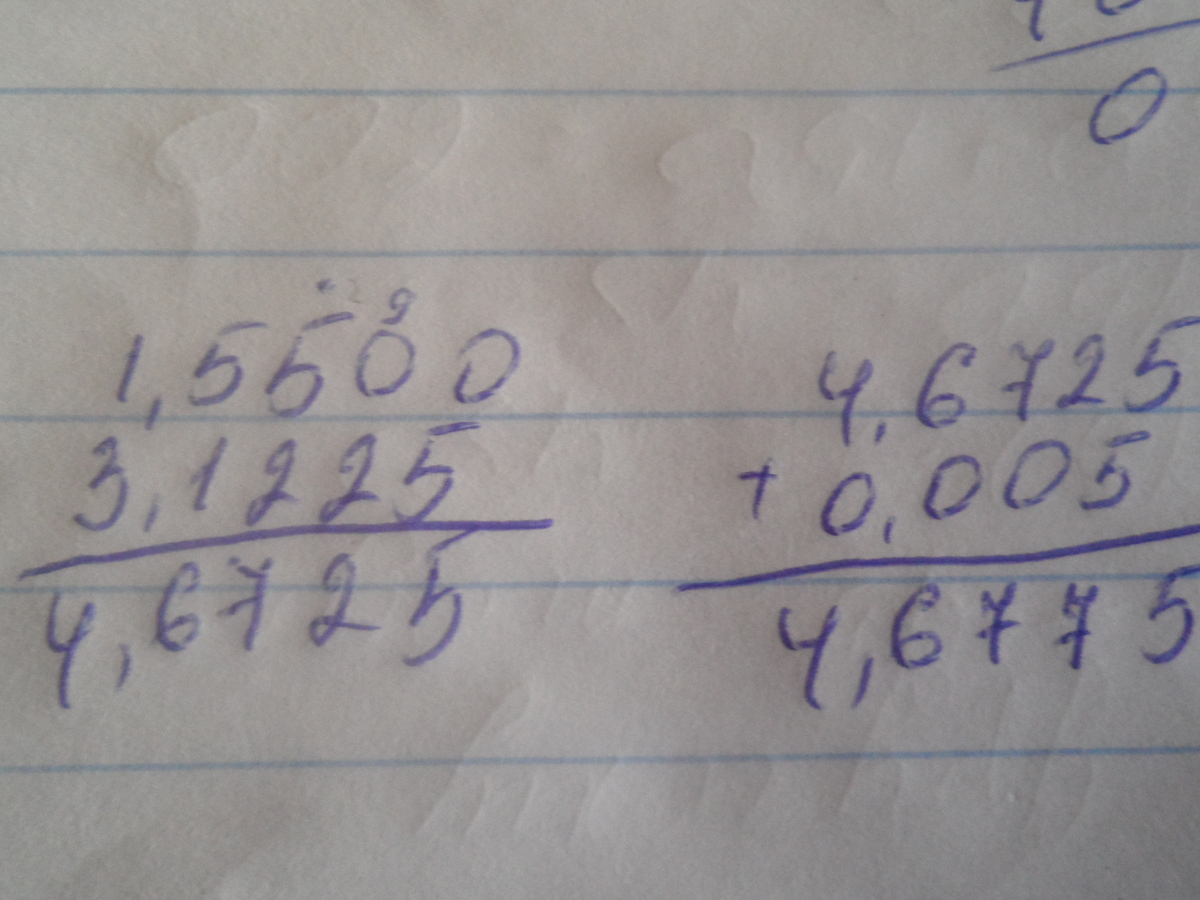 0
9
1,5500
3,1225
4,6725
4,6725
+ 0,005
4,6775